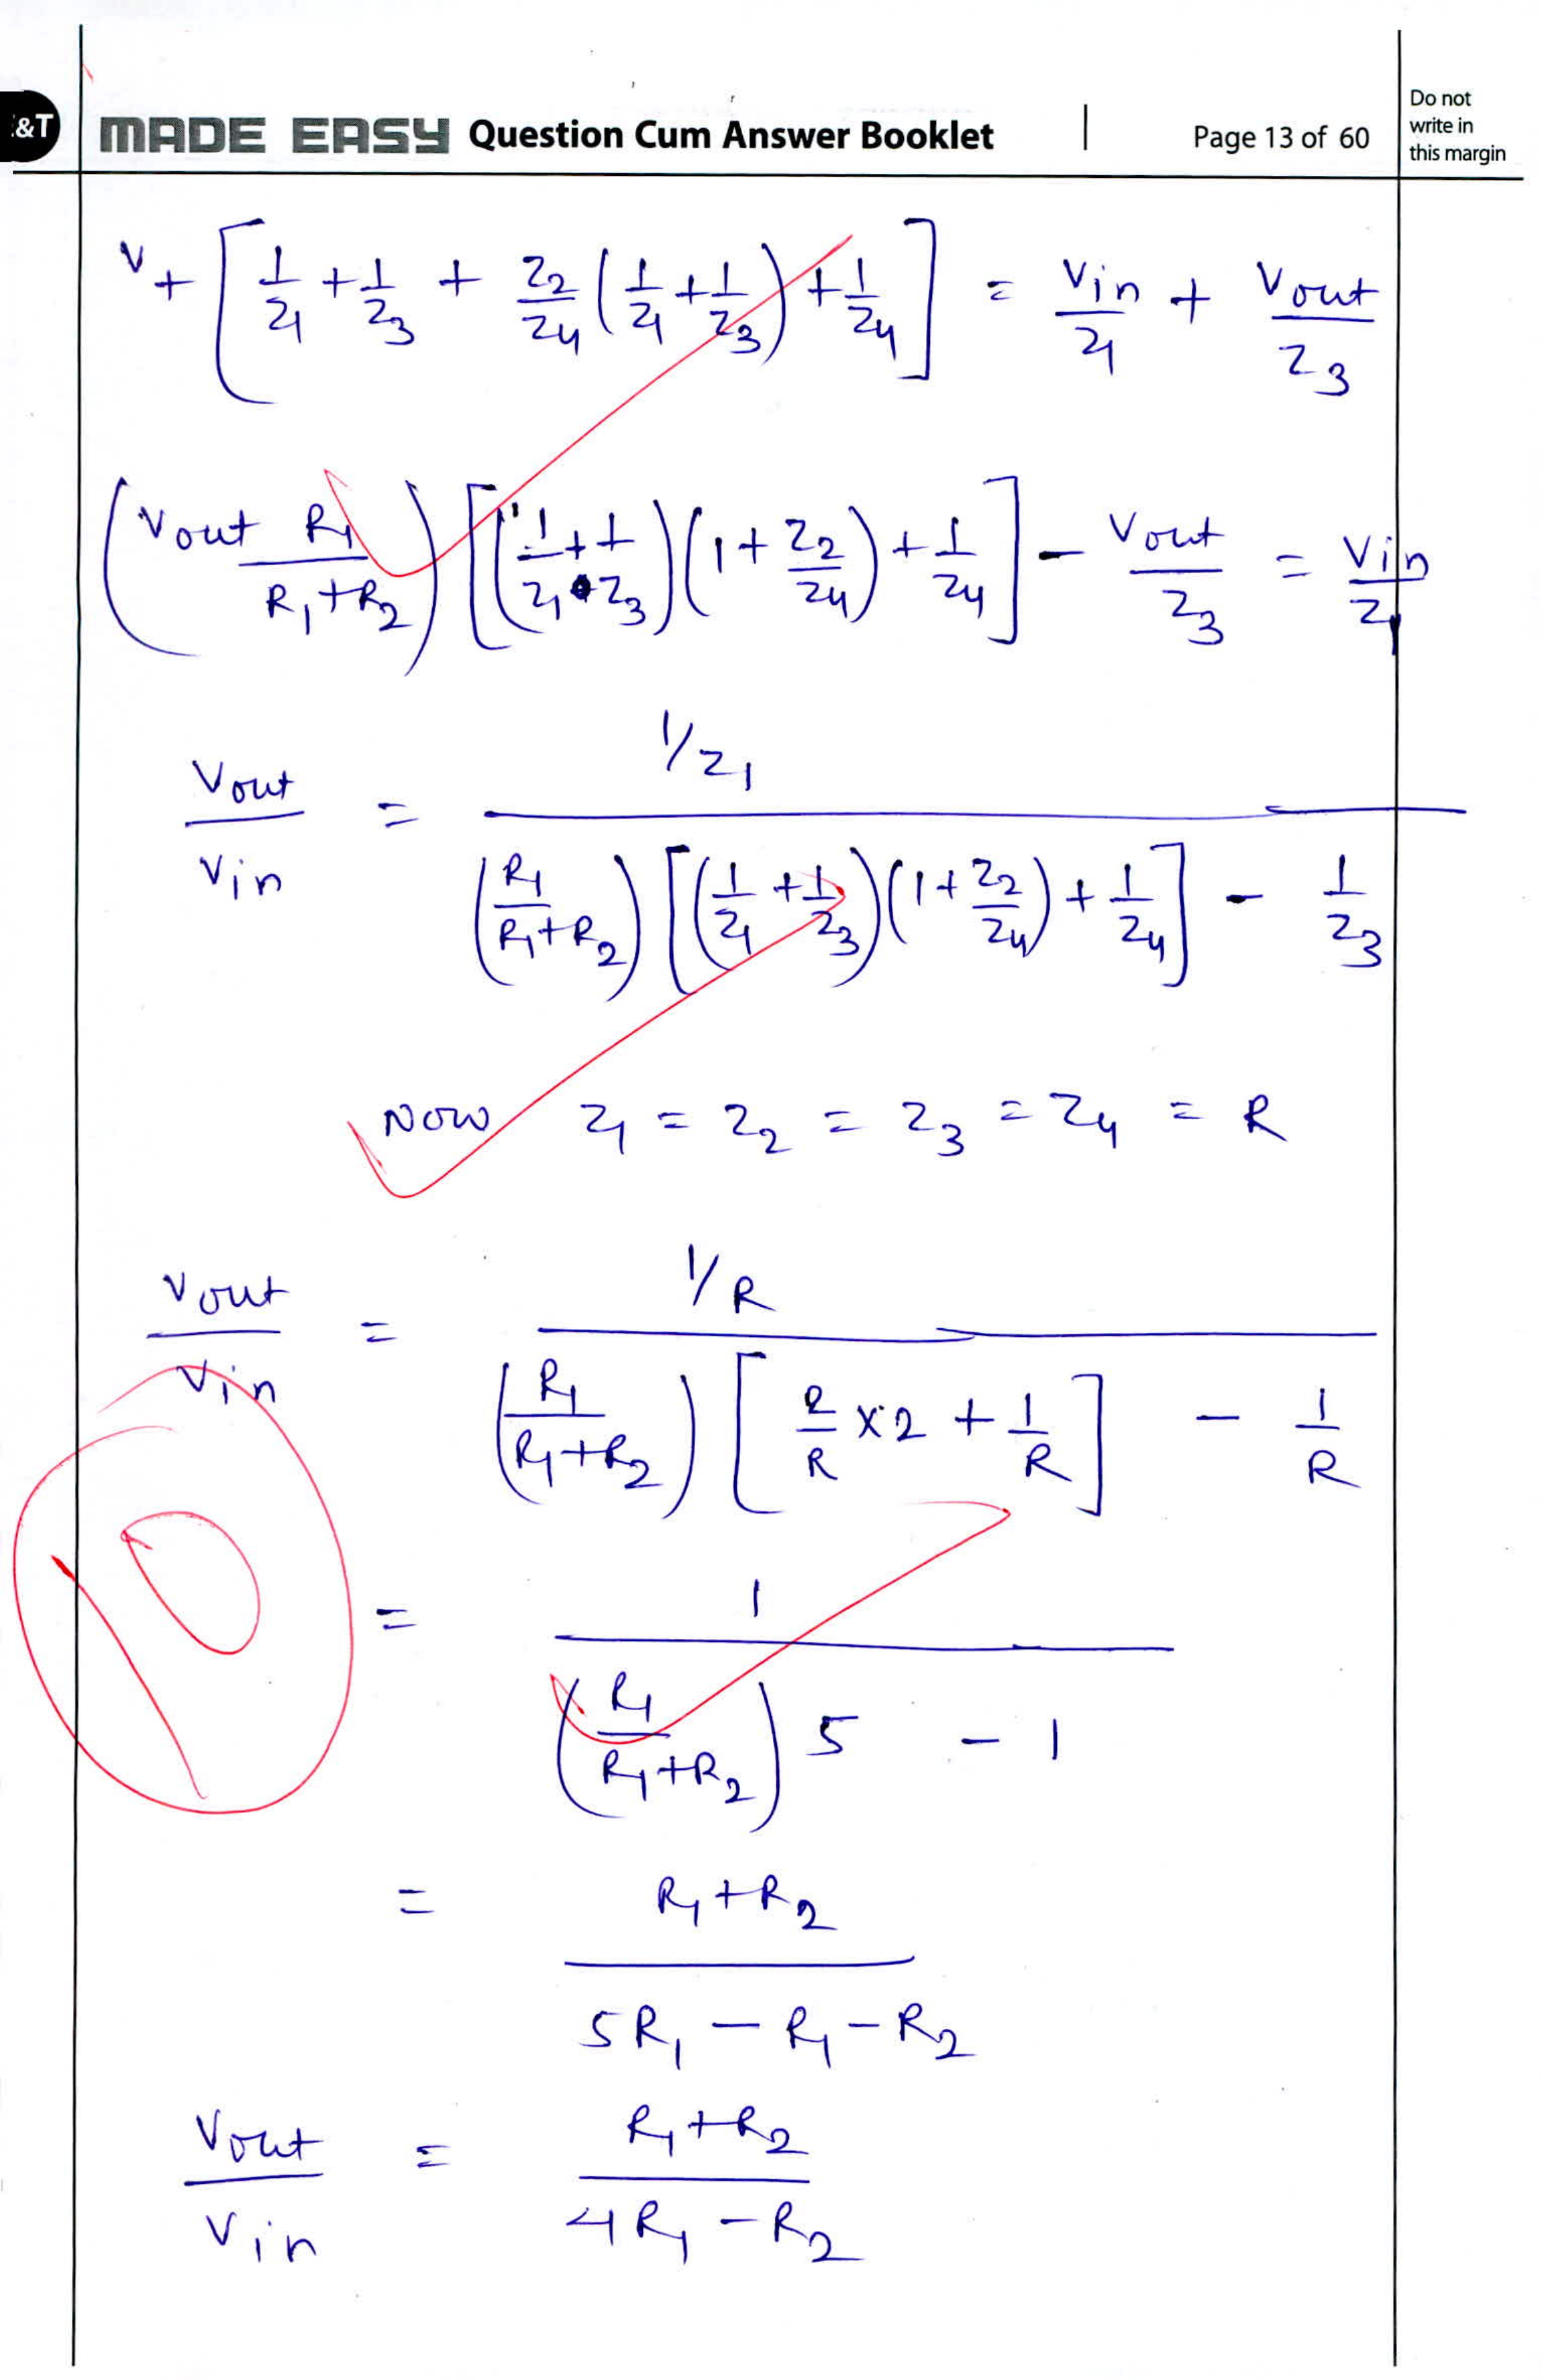 E&T MADE EASY Question Cum Answer Booklet | Page 13 of 60 Do not write in this margin
V+ [ 1/Z1 + 1/Z3 + Z2/Z4 ( 1/Z1 + 1/Z3 ) + 1/Z4 ] = Vin/Z1 + Vout/Z3
( Vout R1/(R1+R2) ) [ ( 1/Z1 + 1/Z3 ) ( 1 + Z2/Z4 ) + 1/Z4 ] - Vout/Z3 = Vin/Z1
Vout/Vin = (1/Z1) / ( ( R1/(R1+R2) ) [ ( 1/Z1 + 1/Z3 ) ( 1 + Z2/Z4 ) + 1/Z4 ] - 1/Z3 )
NOW Z1 = Z2 = Z3 = Z4 = R
Vout/Vin = (1/R) / ( ( R1/(R1+R2) ) [ 2/R × 2 + 1/R ] - 1/R )
10
= 1 / ( ( R1/(R1+R2) ) 5 - 1 )
= (R1+R2) / (5R1 - R1 - R2)
Vout/Vin = (R1+R2) / (4R1 - R2)